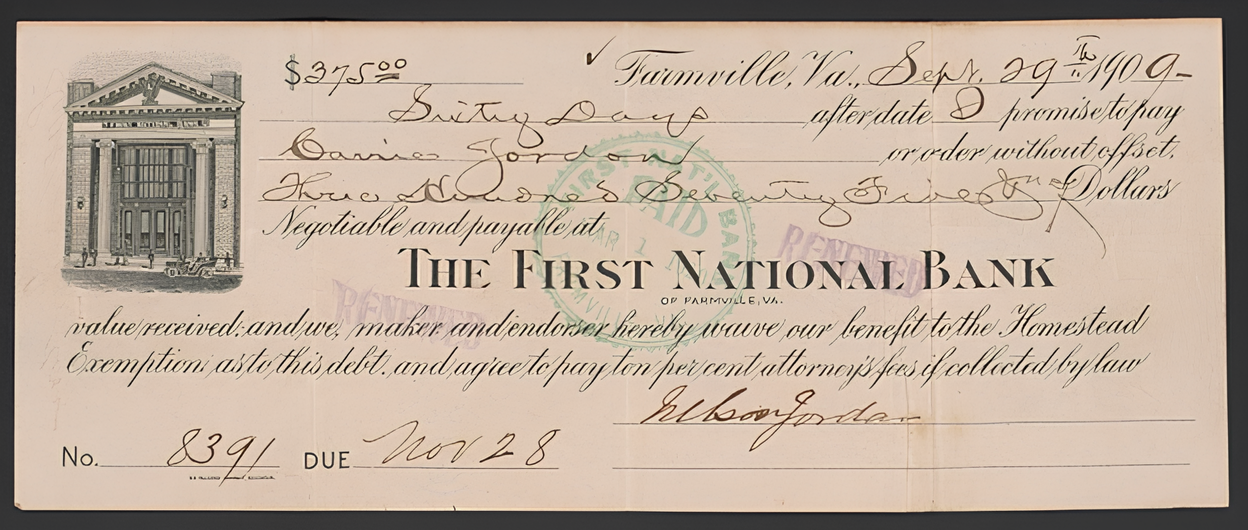 $375.00 Farmville, Va., Sept. 29th 1909-
Sixty Days after date I promise to pay
Carrie Jordon or order without offset.
Three Hundred Seventy Five & no/ Dollars
Negotiable and payable at
THE FIRST NATIONAL BANK
OF FARMVILLE, VA.
value received; and we, maker and endorser hereby waive our benefit to the Homestead
Exemption as to this debt, and agree to pay ten per cent attorney's fees if collected by law
Nelson Jordan
No. 8391 DUE Nov 28
FIRST NATIONAL BANK
FIRST NAT'L BANK
PAID
MAR 1
FARMVILLE
RENEWED
RENEWED